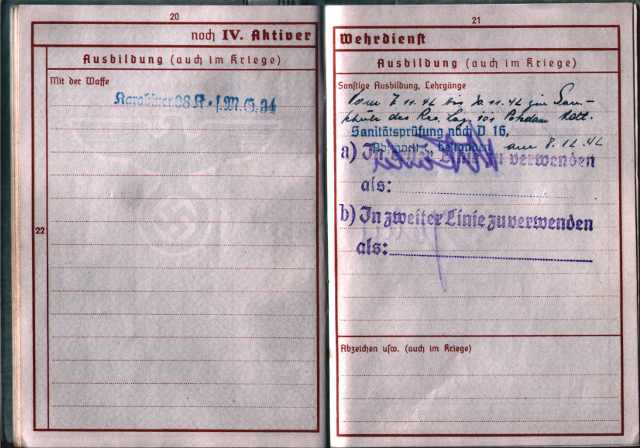 20
noch IV. Aktiver
Ausbildung (auch im Kriege)
Mit der Waffe
Karabiner 98 K. l.M.G. 34
22
21
Wehrdienst
Ausbildung (auch im Kriege)
Sonstige Ausbildung, Lehrgänge
Vom 7.11.42 bis 30.11.42 zur
des
Sanitätsprüfung nach D 16,
bestanden am 8.12.42
a) In Linie zu verwenden
als:
b) In zweiter Linie zu verwenden
als:
Abzeichen usw. (auch im Kriege)